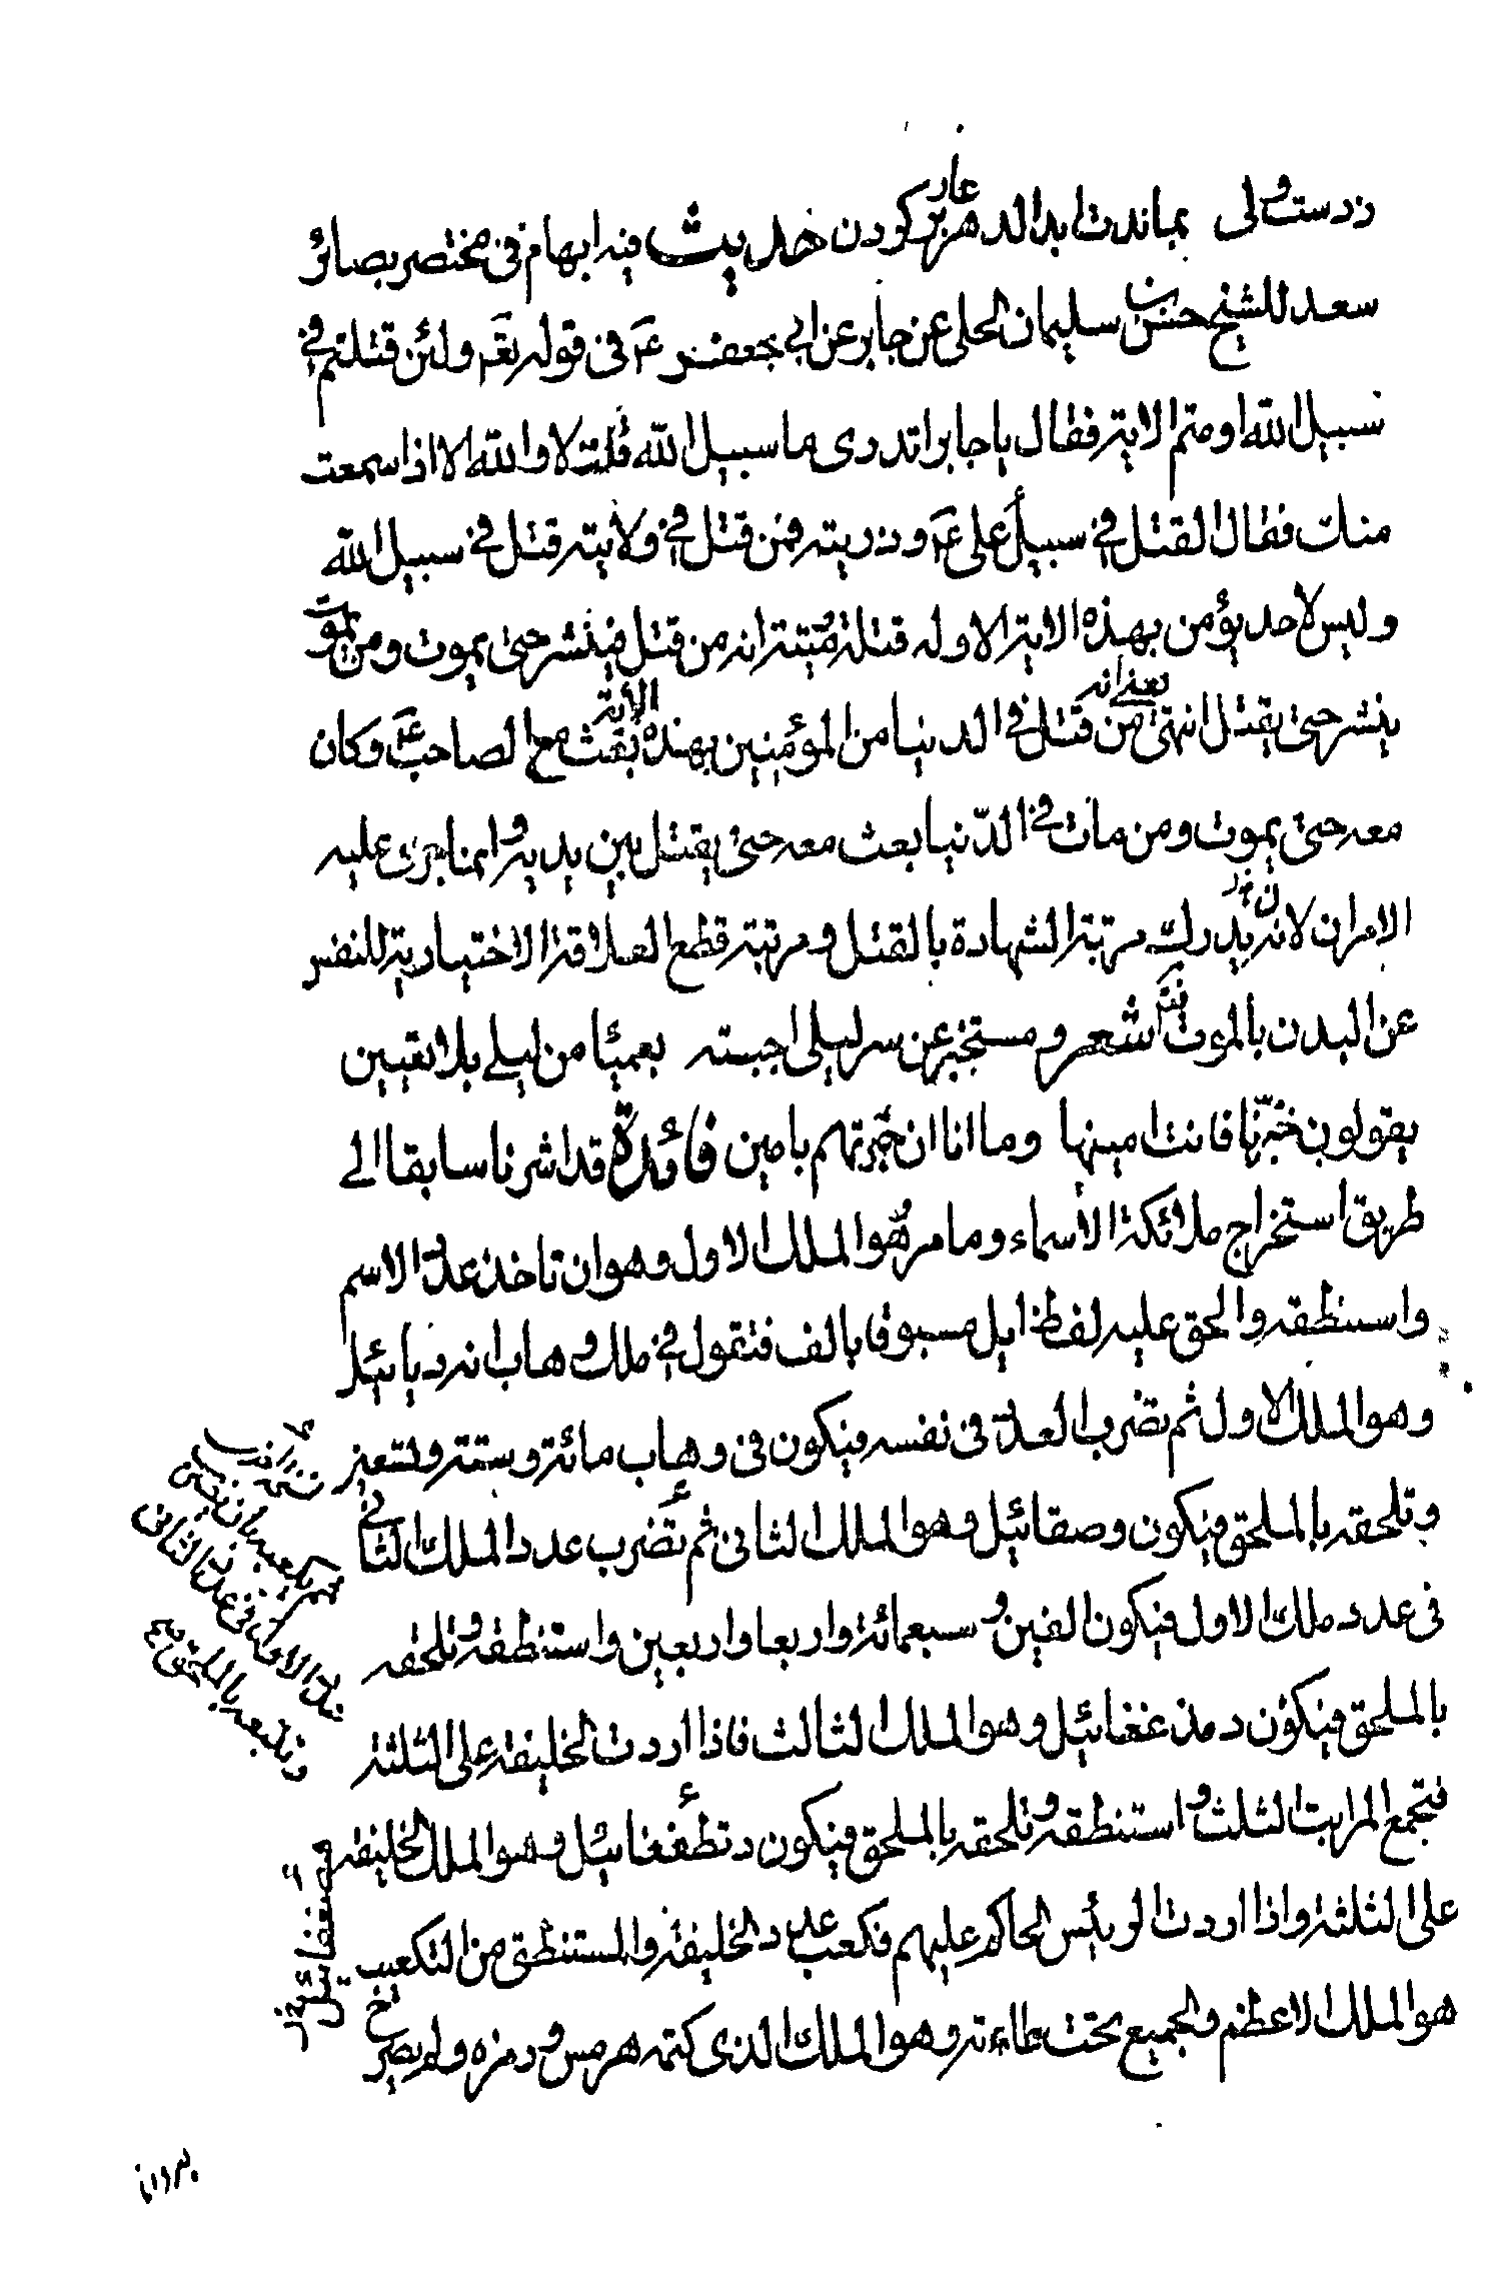 زدست ولى بماندت ابد الدهر عار بر كودن حديث فيه ابهام فى مختصر بصائر
سعد للشيخ حسن بن سليمان الحلى عن جابر عن ابى جعفر عۤ فى قوله تعۤ ولئن قتلتم فى
سبيل الله او متم الاية فقال يا جابر اتدرى ما سبيل الله قلت لا والله الا اذا سمعت
منك فقال القتل فى سبيل على عۤ و ذريته فمن قتل فى ولايته قتل فى سبيل الله
وليس لاحد يؤمن بهذه الاية الا وله قتلة وميتة انه من قتل فينشر حتى يموت ومن يموت
ينشر حتى يقتل انتهى يعنى انه من قتل فى الدنيا من المؤمنين بهذه الاية بعث مع الصاحب عۤ وكان
معه حتى يموت ومن مات فى الدنيا بعث معه حتى يقتل بين يديه وانما يجرى عليه
الامران لانه يدرك مرتبة الشهادة بالقتل ومرتبة قطع العلاقة الاختيارية للنفس
عن البدن بالموت شعر ومستخبر عن سر ليلى اجبته بعميا من ليلى بلا تعيين
يقولون خبّرنا فانت امينها وما انا ان خبرتهم بامين فائدة قد اشرنا سابقا الى
طريق استخراج ملائكة الأسماء وما مر هو الملك الاول وهو ان تاخذ عدد الاسم
واستنطقه والحق عليه لفظ ايل مسبوقا بالف فتقول فى ملك وهاب انه ديائيل
وهو الملك الاول ثم تضرب العدد فى نفسه فيكون فى وهاب مائة وستة وتسعين
وتلحقه بالملحق فيكون وصقائيل وهو الملك الثانى ثم تضرب عدد الملك الثانى
فى عدد ملك الاول فيكون الفين و سبعمائة واربعا واربعين واستنطقه وتلحقه
بالملحق فيكون دمذغغائيل وهو الملك الثالث فاذا اردت الخليفة على الثلثة
فتجمع المراتب الثلث و استنطقه وتلحقه بالملحق فيكون دتظغغائيل وهو الملك الخليفة
على الثلثة واذا اردت الرئيس الحاكم عليهم فكعب عدد الخليفة والمستنطق من التكعيب
هو الملك الاعظم والجميع تحت طاعته وهو الملك الذى كتمه هرمس و رمزه ولم يصرح
وتلحقه بالملحق